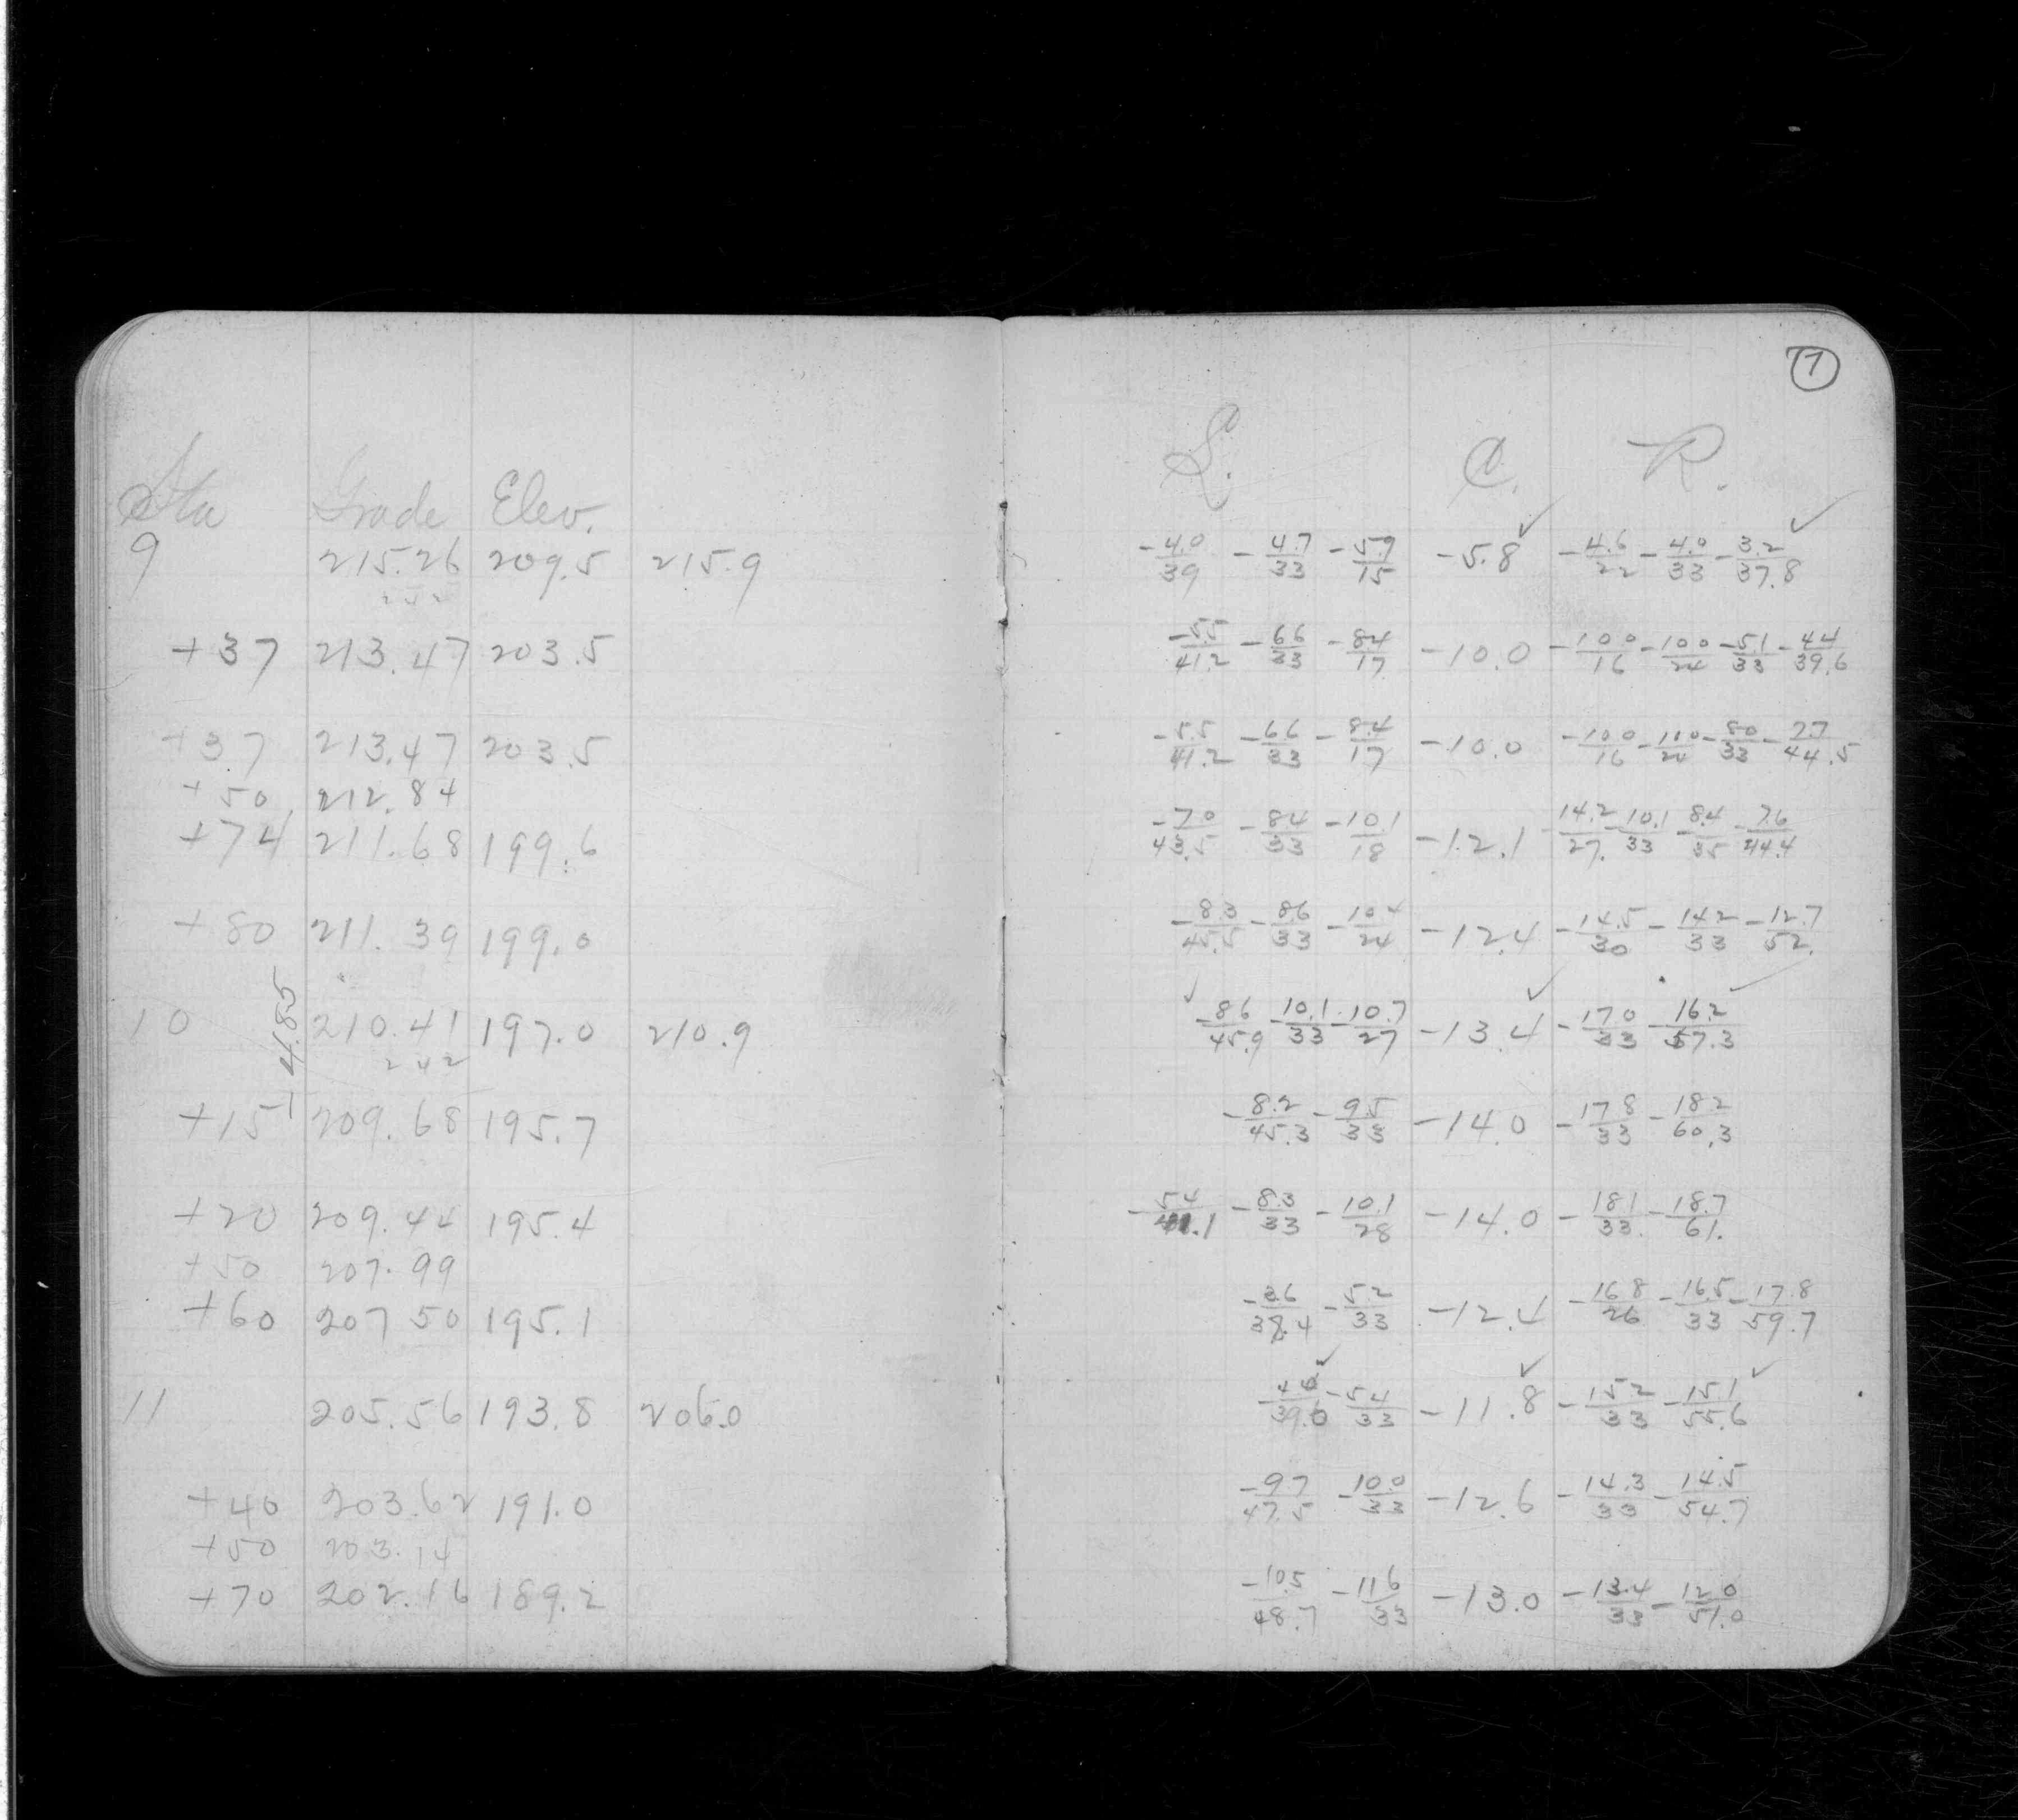 7
Sta Grade Elev. L. C. R.
9 215.26 209.5 215.9 -4.0/39 -4.7/33 -5.9/15 -5.8 ✓ -4.6/22 -4.0/33 -3.2/37.8 ✓
242
+37 213.47 203.5 -5.5/41.2 -6.6/33 -8.4/17 -10.0 -10.0/16 -10.0/24 -5.1/33 -4.4/39.6
+37 213.47 203.5 -5.5/41.2 -6.6/33 -8.4/17 -10.0 -10.0/16 -10.0/24 -8.0/33 -7.7/44.5
+50 212.84
+74 211.68 199.6 -7.0/43.5 -8.4/33 -10.1/18 -12.1 -14.2/27. -10.1/33 -8.4/35 -7.6/44.4
+80 211.39 199.0 -8.3/45.5 -8.6/33 -10.4/24 -12.4 -14.5/30 -14.2/33 -12.7/52.
10 4.85 210.41 197.0 210.9 ✓ -8.6/45.9 -10.1/33 -10.7/27 -13.4 ✓ -17.0/33 -16.2/57.3 ✓
242
+15 209.68 195.7 -8.2/45.3 -9.5/33 -14.0 -17.8/33 -18.2/60.3
+20 209.44 195.4 -5.4/41.1 -8.3/33 -10.1/28 -14.0 -18.1/33. -18.7/61.
+50 207.99
+60 207 50 195.1 -3.6/38.4 -5.2/33 -12.4 -16.8/26 -16.5/33 -17.8/59.7
11 205.56 193.8 206.0 /39.6 ✓ -5.4/33 -11.8 ✓ -15.2/33 -15.1/55.6 ✓
+40 203.62 191.0 -9.7/47.5 -10.0/33 -12.6 -14.3/33 -14.5/54.7
+50 203.14
+70 202.16 189.2 -10.5/48.7 -11.6/33 -13.0 -13.4/33 -12.0/51.0